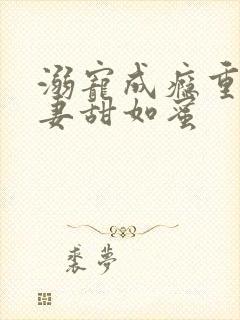 溺寵成癮重
妻甜如蜜
裘夢